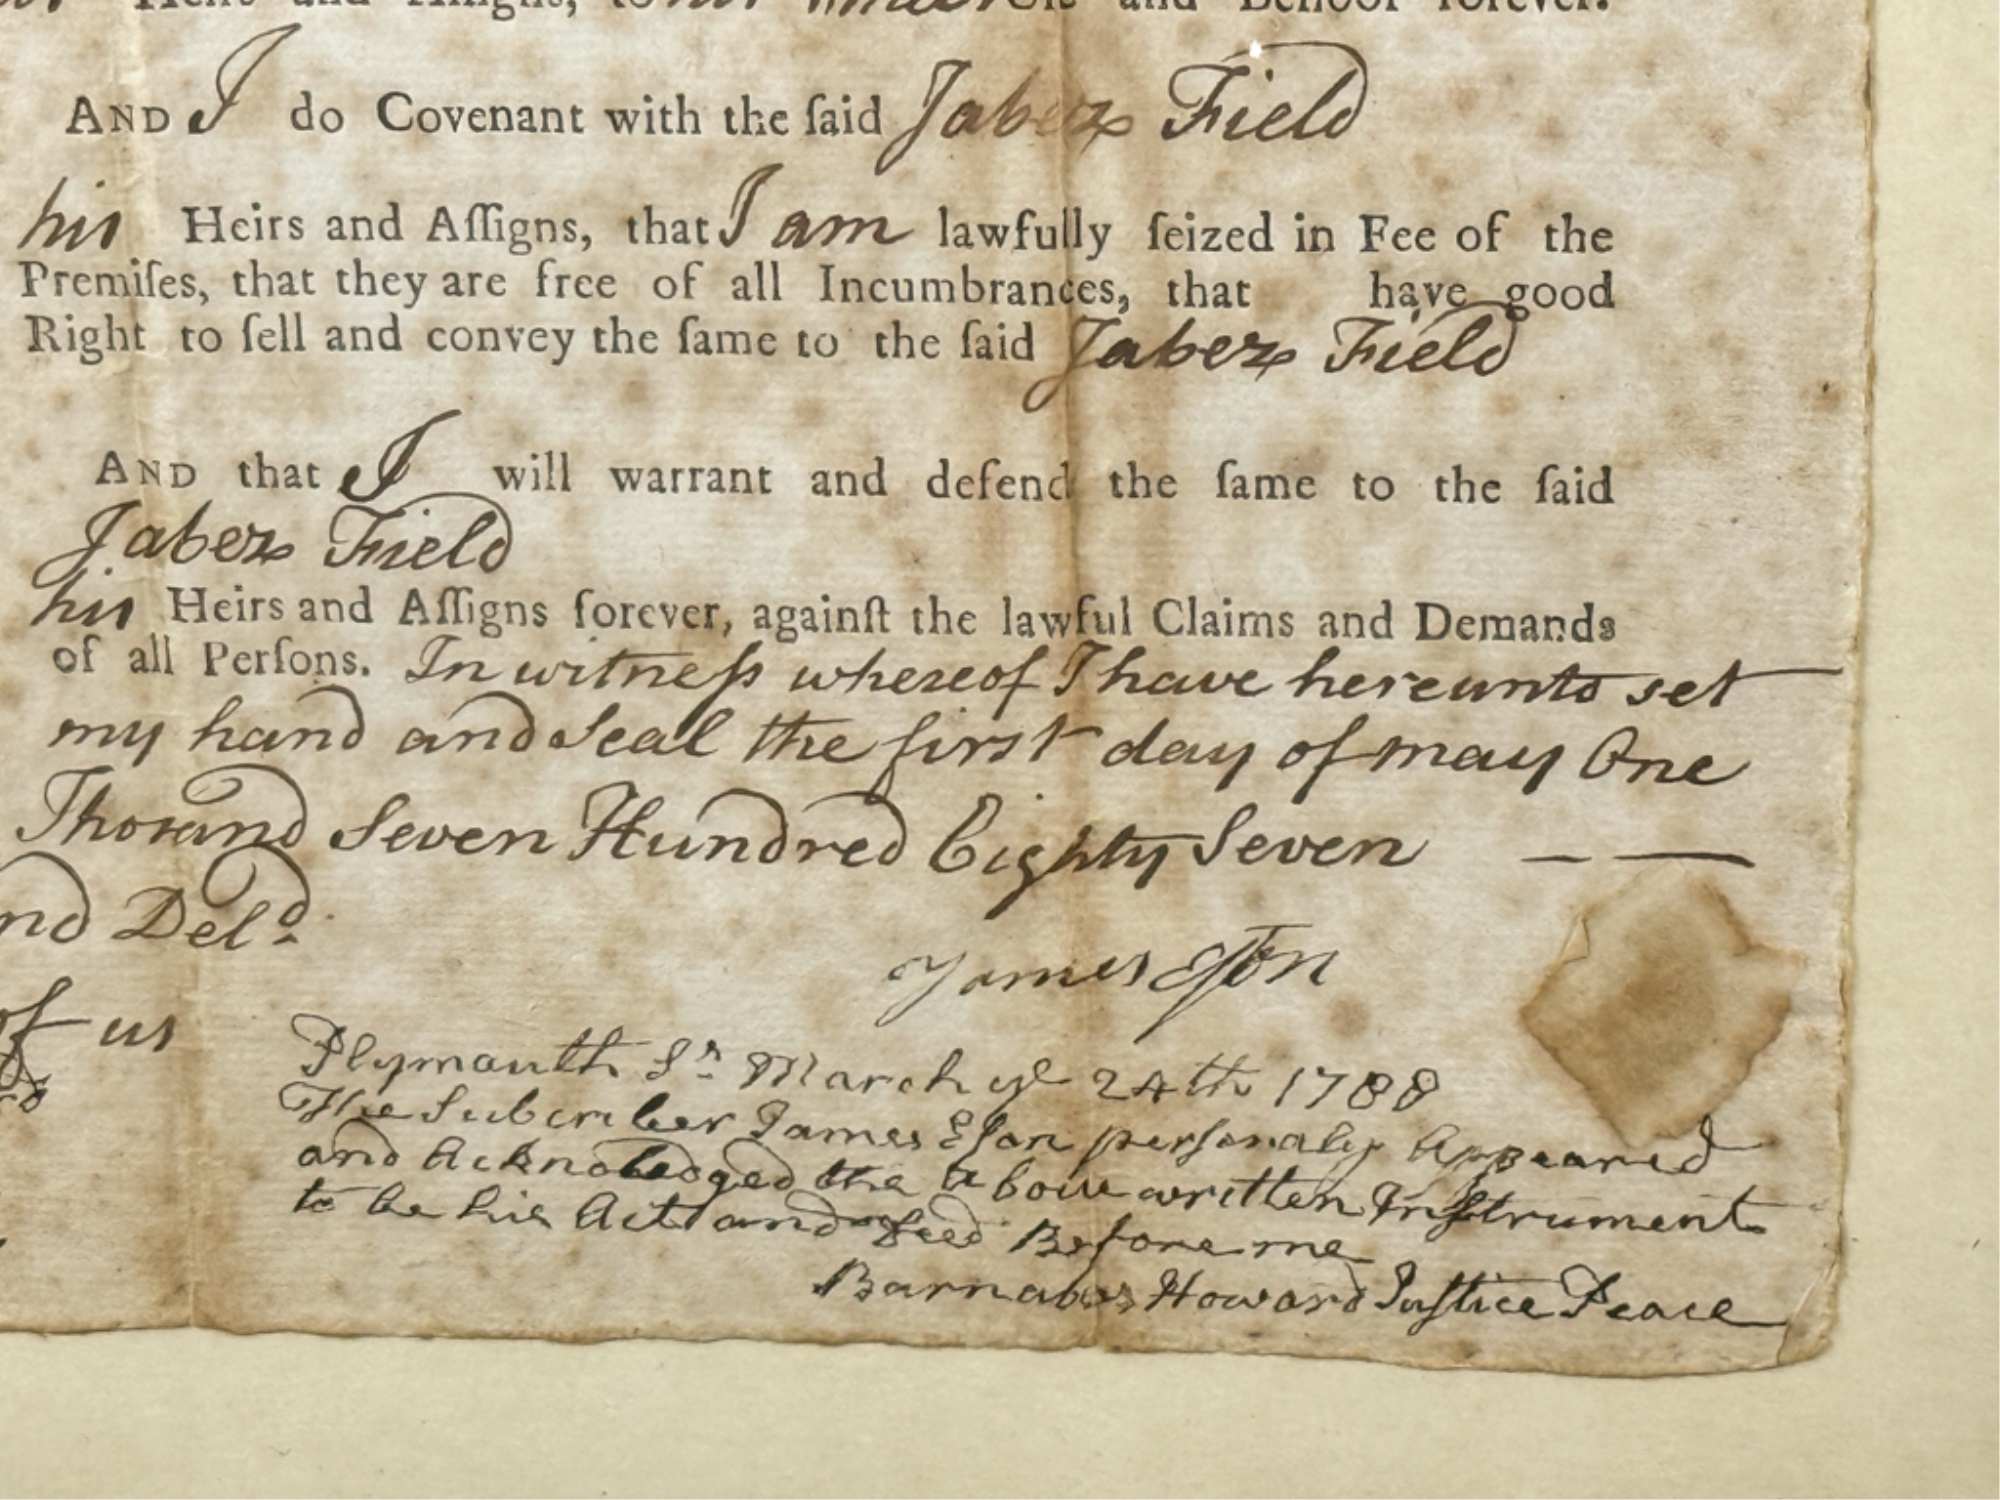 Heirs and Assigns, to his Use and Behoof forever.
AND I do Covenant with the ſaid Jabez Field
his Heirs and Aſſigns, that I am lawfully ſeized in Fee of the
Premiſes, that they are free of all Incumbrances, that have good
Right to ſell and convey the ſame to the ſaid Jabez Field
AND that I will warrant and defend the ſame to the ſaid
Jabez Field
his Heirs and Aſſigns forever, againſt the lawful Claims and Demands
of all Perſons. In witneſs whereof I have hereunto set
my hand and Seal the first day of may One
Thosand Seven Hundred Eighty Seven — —
nd Deld
of us
James Eſton
Plymouth Ss March ye 24th 1788
The Subcriber James Eſon perſonaly Appeared
and Acknoledged the above written Inſtrument
to be his Act and Deed Before me
Barnabas Howard Juſtice Peace